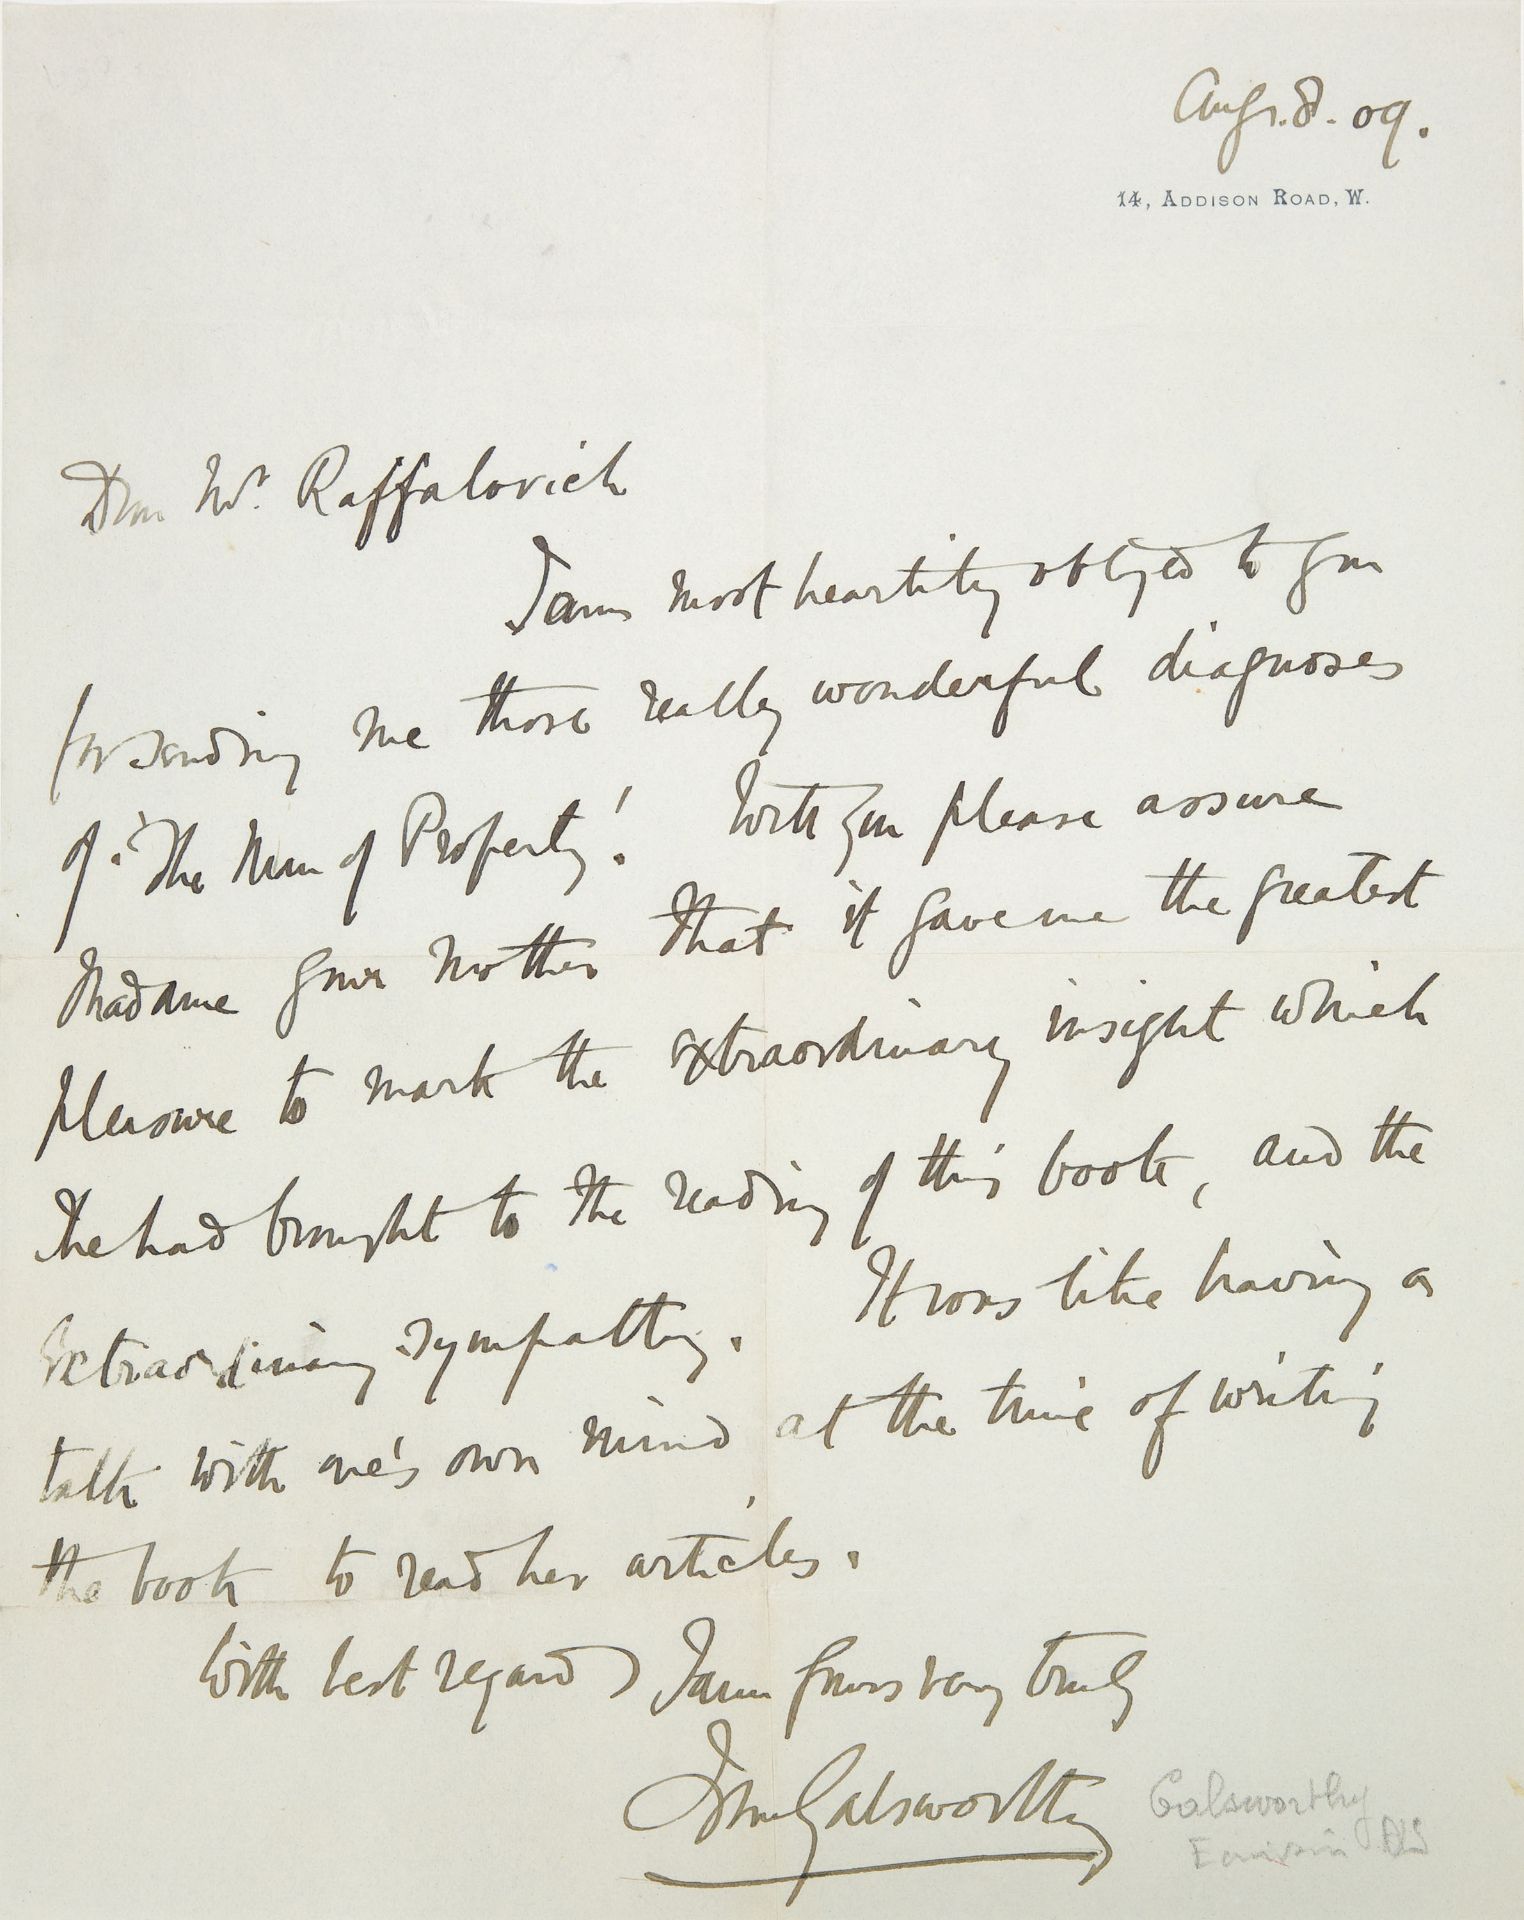 Augt. 8. 09.
14, Addison Road, W.
Dear Mr. Raffalovich
I am most heartily obliged to you
for sending me those really wonderful diagnoses
of 'The Man of Property'. Will you please assure
Madame your mother that it gave me the greatest
pleasure to mark the extraordinary insight which
she had brought to the reading of this book, and the
extraordinary sympathy. It was like having a
talk with one's own mind at the time of writing
the book to read her articles.
With best regards I am yours very truly
John Galsworthy
Galsworthy